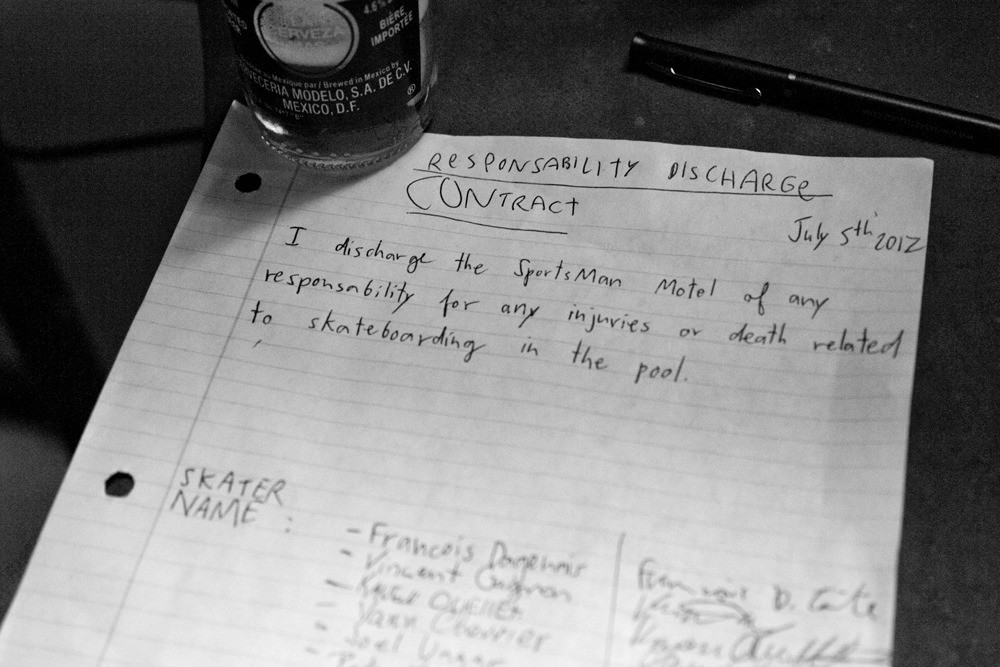 4.6%
BIÈRE
IMPORTÉE
CERVEZA
Mexique par / Brewed in Mexico by
CERVECERIA MODELO, S.A. DE C.V.
MEXICO, D.F.
®
RESPONSABILITY DISCHARGE
CONTRACT
July 5th 2012
I discharge the SportsMan Motel of any
responsability for any injuries or death related
to skateboarding in the pool.
SKATER
NAME :
- Francois
- Vincent Gagnon
-
- Yann Chouvier
- Joel